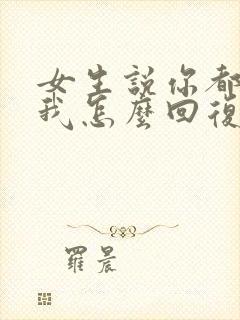 女生說你都
我怎麼回復
羅晨